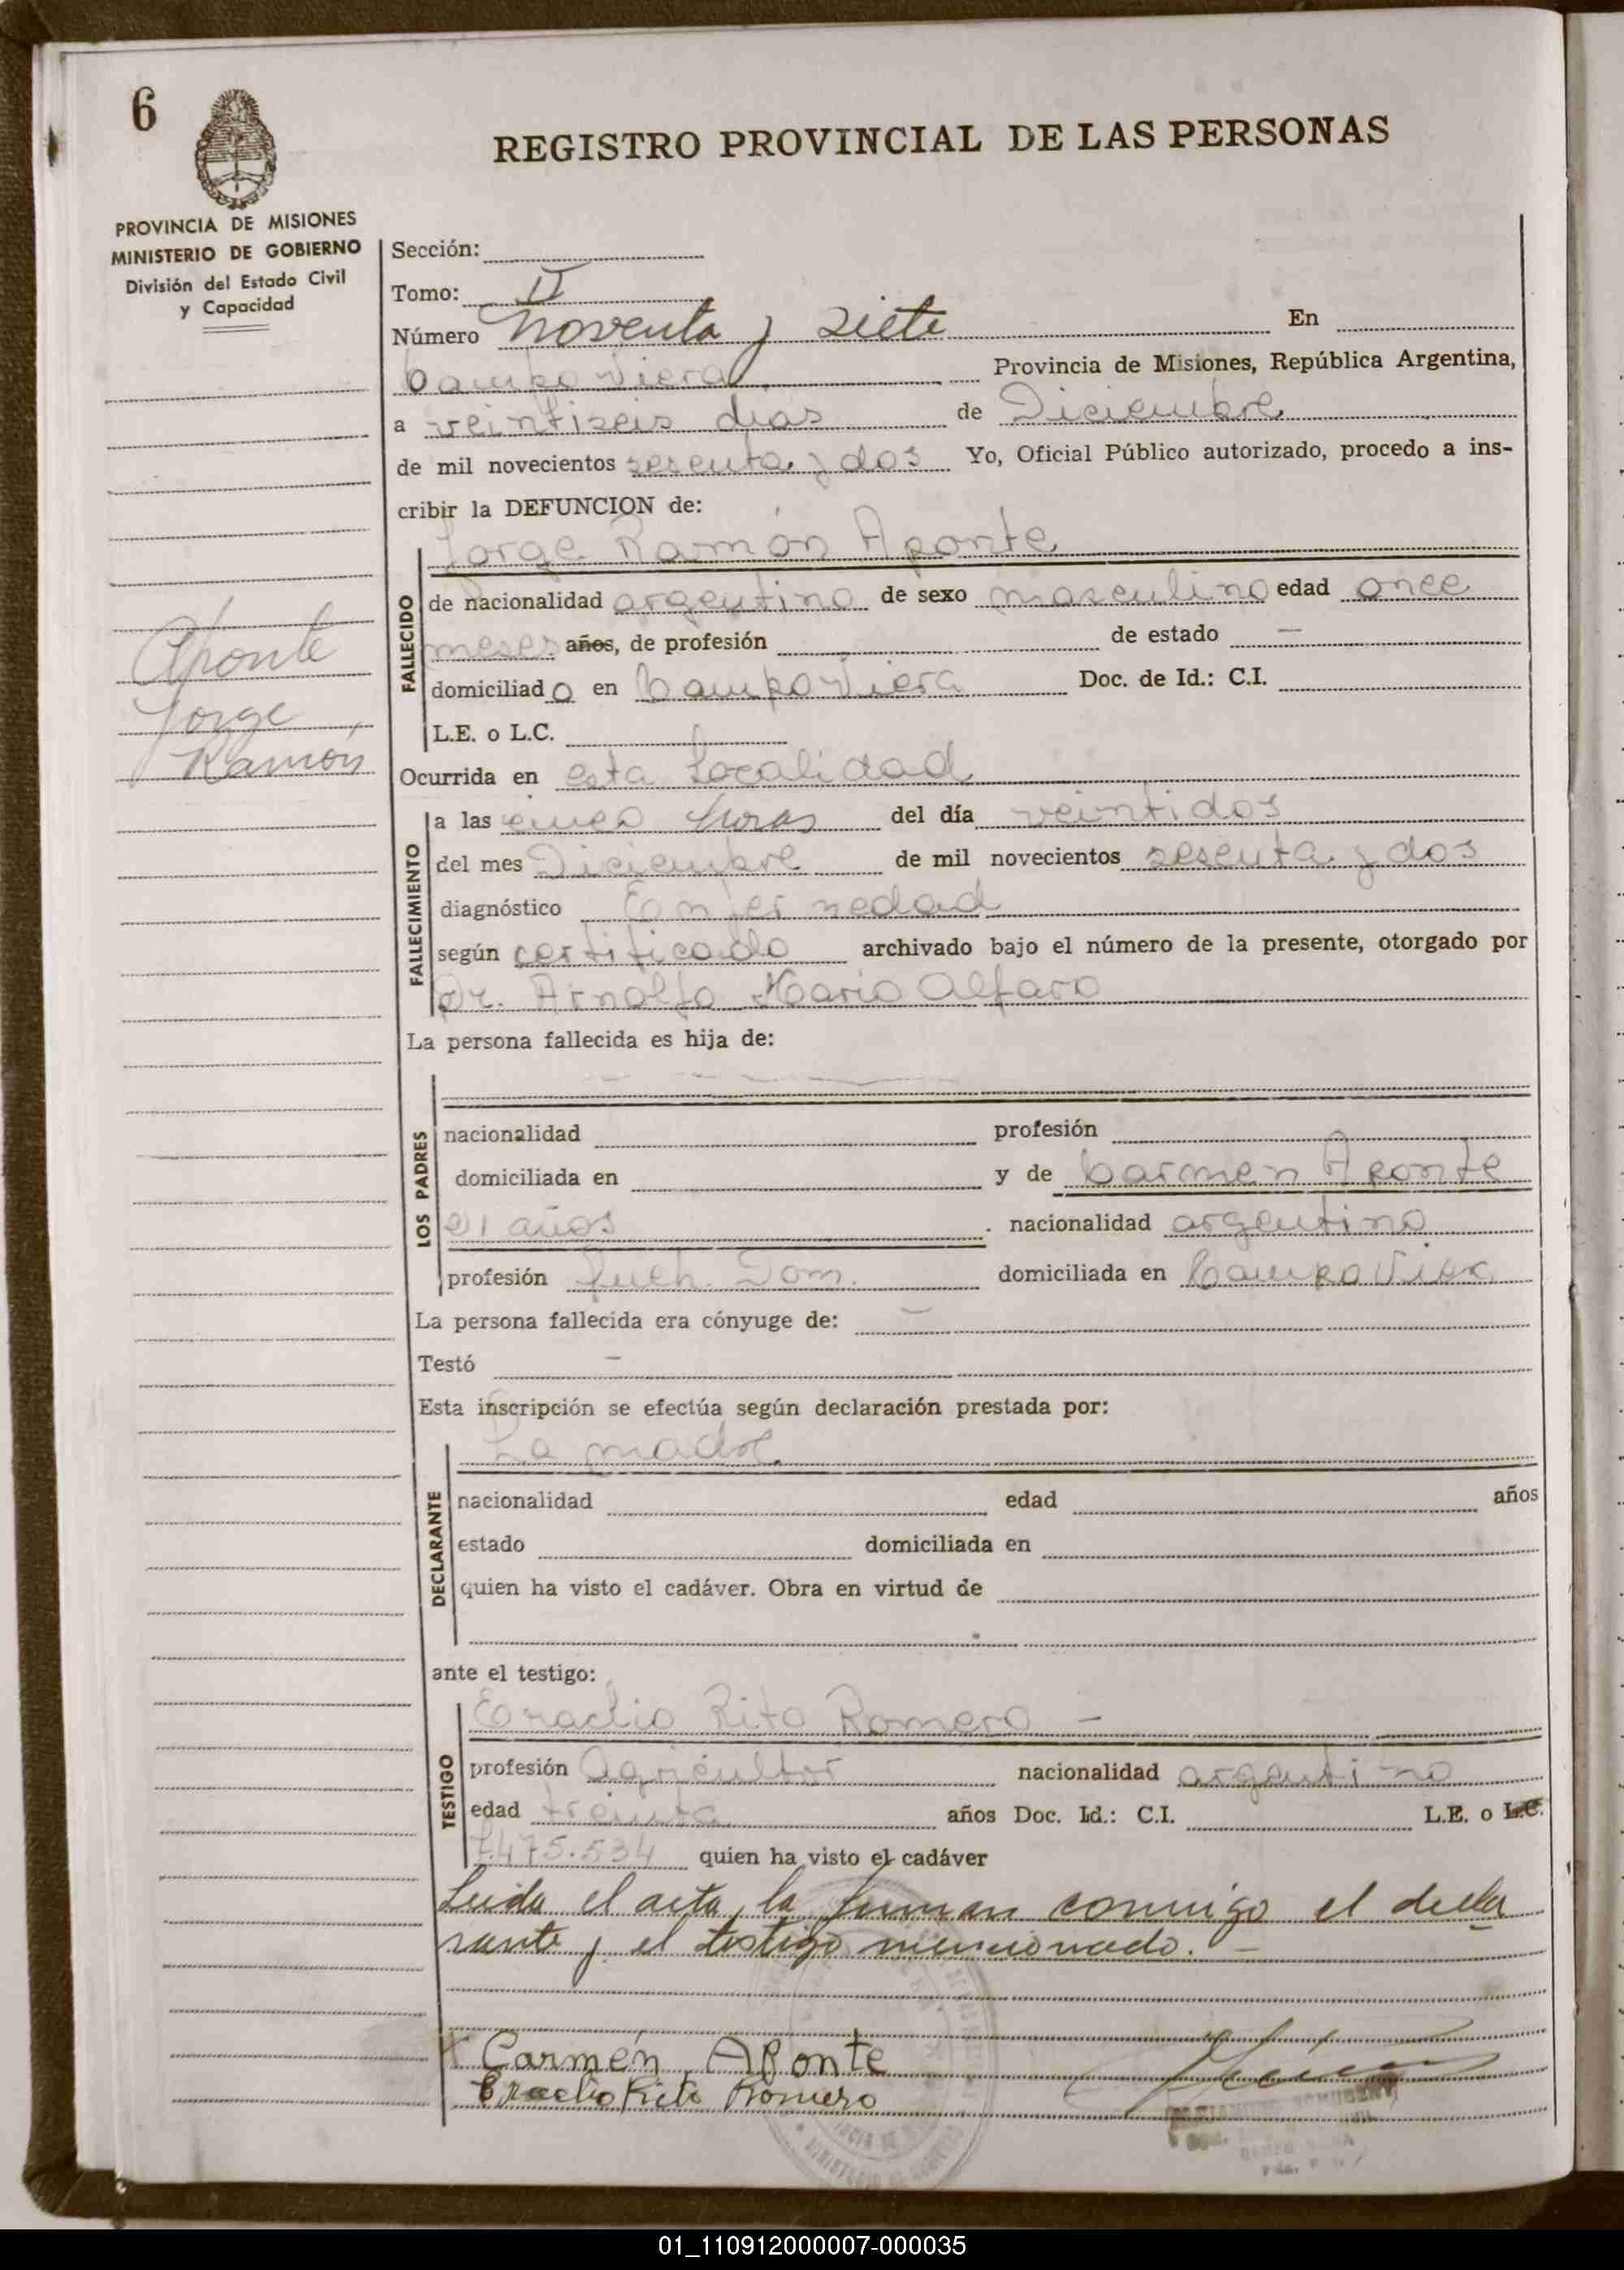 6
REGISTRO PROVINCIAL DE LAS PERSONAS
PROVINCIA DE MISIONES
MINISTERIO DE GOBIERNO
División del Estado Civil
y Capacidad
Sección:
Tomo: II
Número Noventa y siete En
Campo Viera Provincia de Misiones, República Argentina,
a veintiseis dias de Diciembre
de mil novecientos sesenta y dos Yo, Oficial Público autorizado, procedo a ins-
cribir la DEFUNCION de:
Aponte
Jorge
Ramón
FALLECIDO
Jorge Ramón Aponte
de nacionalidad argentino de sexo masculino edad once
meses años, de profesión de estado —
domiciliado en Campo Viera Doc. de Id.: C.I.
L.E. o L.C.
Ocurrida en esta Localidad
FALLECIMIENTO
a las cinco horas del día veintidos
del mes Diciembre de mil novecientos sesenta y dos
diagnóstico Enfermedad
según certificado archivado bajo el número de la presente, otorgado por
Dr. Arnolfo Mario Alfaro
La persona fallecida es hija de:
LOS PADRES
nacionalidad profesión
domiciliada en y de Carmen Aponte
21 años . nacionalidad argentino
profesión Dom. domiciliada en Campo Viera
La persona fallecida era cónyuge de: —
Testó —
Esta inscripción se efectúa según declaración prestada por:
DECLARANTE
La madre
nacionalidad edad años
estado domiciliada en
quien ha visto el cadáver. Obra en virtud de
ante el testigo:
TESTIGO
Eraclio Rito Romero —
profesión Agricultor nacionalidad argentino
edad treinta años Doc. Id.: C.I. L.E. o L.C.
7.475.534 quien ha visto el cadáver
Leida el acta, la firman conmigo el decla
rante y el testigo mencionado. —
Carmen Aponte
Eraclio Rito Romero
01_110912000007-000035